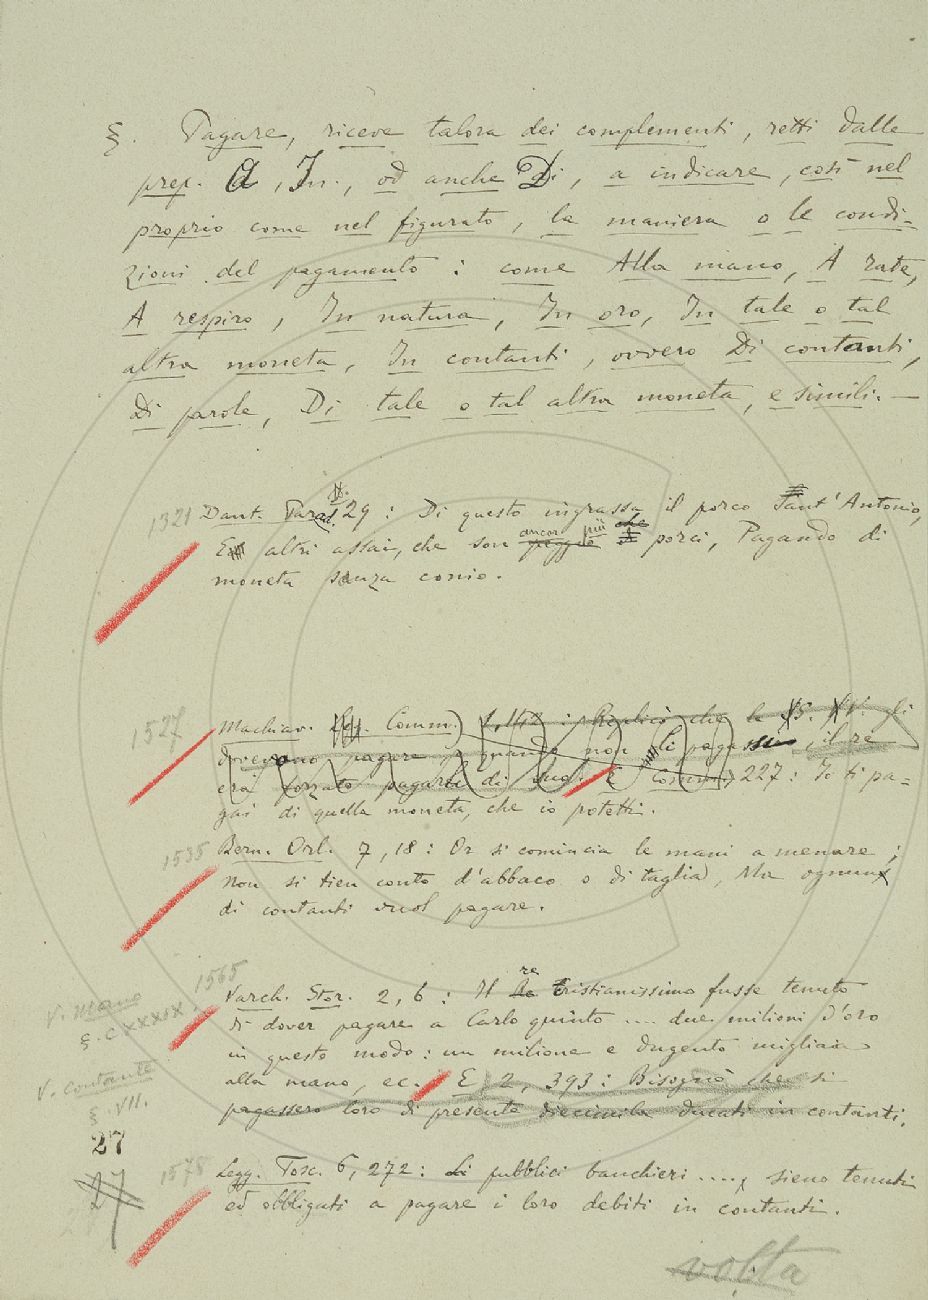 §. Pagare, riceve talora dei complementi, retti dalle
prep. A, In., od anche Di, a indicare, così nel
proprio come nel figurato, la maniera o le condi-
zioni del pagamento: come Alla mano, A rate,
A respiro, In natura, In oro, In tale o tal
altra moneta, In contanti, ovvero Di contanti,
Di parole, Di tale o tal altra moneta, e simili. —
1321 Dant. Parad. 29: Di questo ingrassa il porco Sant' Antonio,
E altri assai, che son ancor più porci, Pagando di
moneta senza conio.
1527 Machiav. Comm. 1, 142: Replicò che la S. V. gli
dovevano pagare, quando non li pagasse il re
era forzato pagarli di suo. E Comm. 227: Io ti pa-
gai di quella moneta, che io potetti.
1535 Bern. Orl. 7, 18: Or si comincia le mani a menare;
Non si tien conto d'abbaco o di taglia, Ma ognun
di contanti vuol pagare.
1565 Varch. Stor. 2, 6: Il re Cristianissimo fusse tenuto
V. Mano
§. CXXXIX.
di dover pagare a Carlo quinto .... due milioni d'oro
in questo modo: un milione e dugento migliaia
V. Contante
§. VII.
alla mano, ec. E 2, 393: Bisognò che si
pagassero loro di presente diecimila ducati in contanti.
27
27
1578 Legg. Tosc. 6, 272: Li pubblici banchieri ...., sieno tenuti
ed obbligati a pagare i loro debiti in contanti.
volta